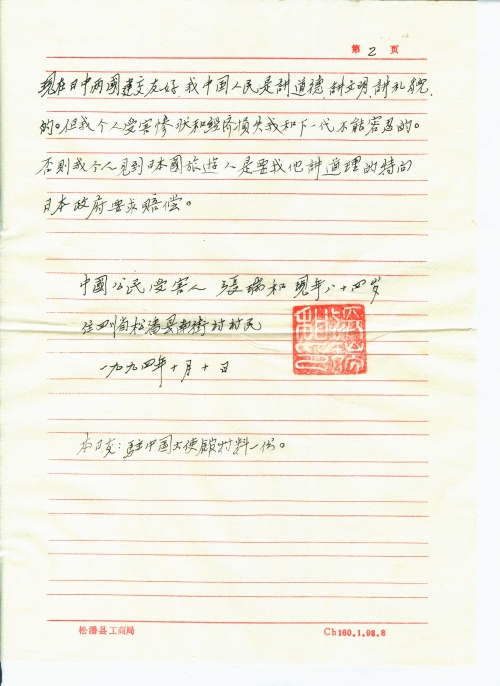 第 2 页
现在日中两國建交友好，我中国人民是讲道德，讲文明，讲礼貌，
的。但我个人受害惨状和經济損失我和下一代不能容忍的。
否則我个人见到日本國旅遊人是要找他讲道理的特向
日本政府要求赔偿。
中國公民受害人 張瑞和 现年八十四岁
住四川省松潘县南街村村民
一九九四年十月十日
驻中国大使館材料一份。
松潘县工商局
Ch160.1.98.8